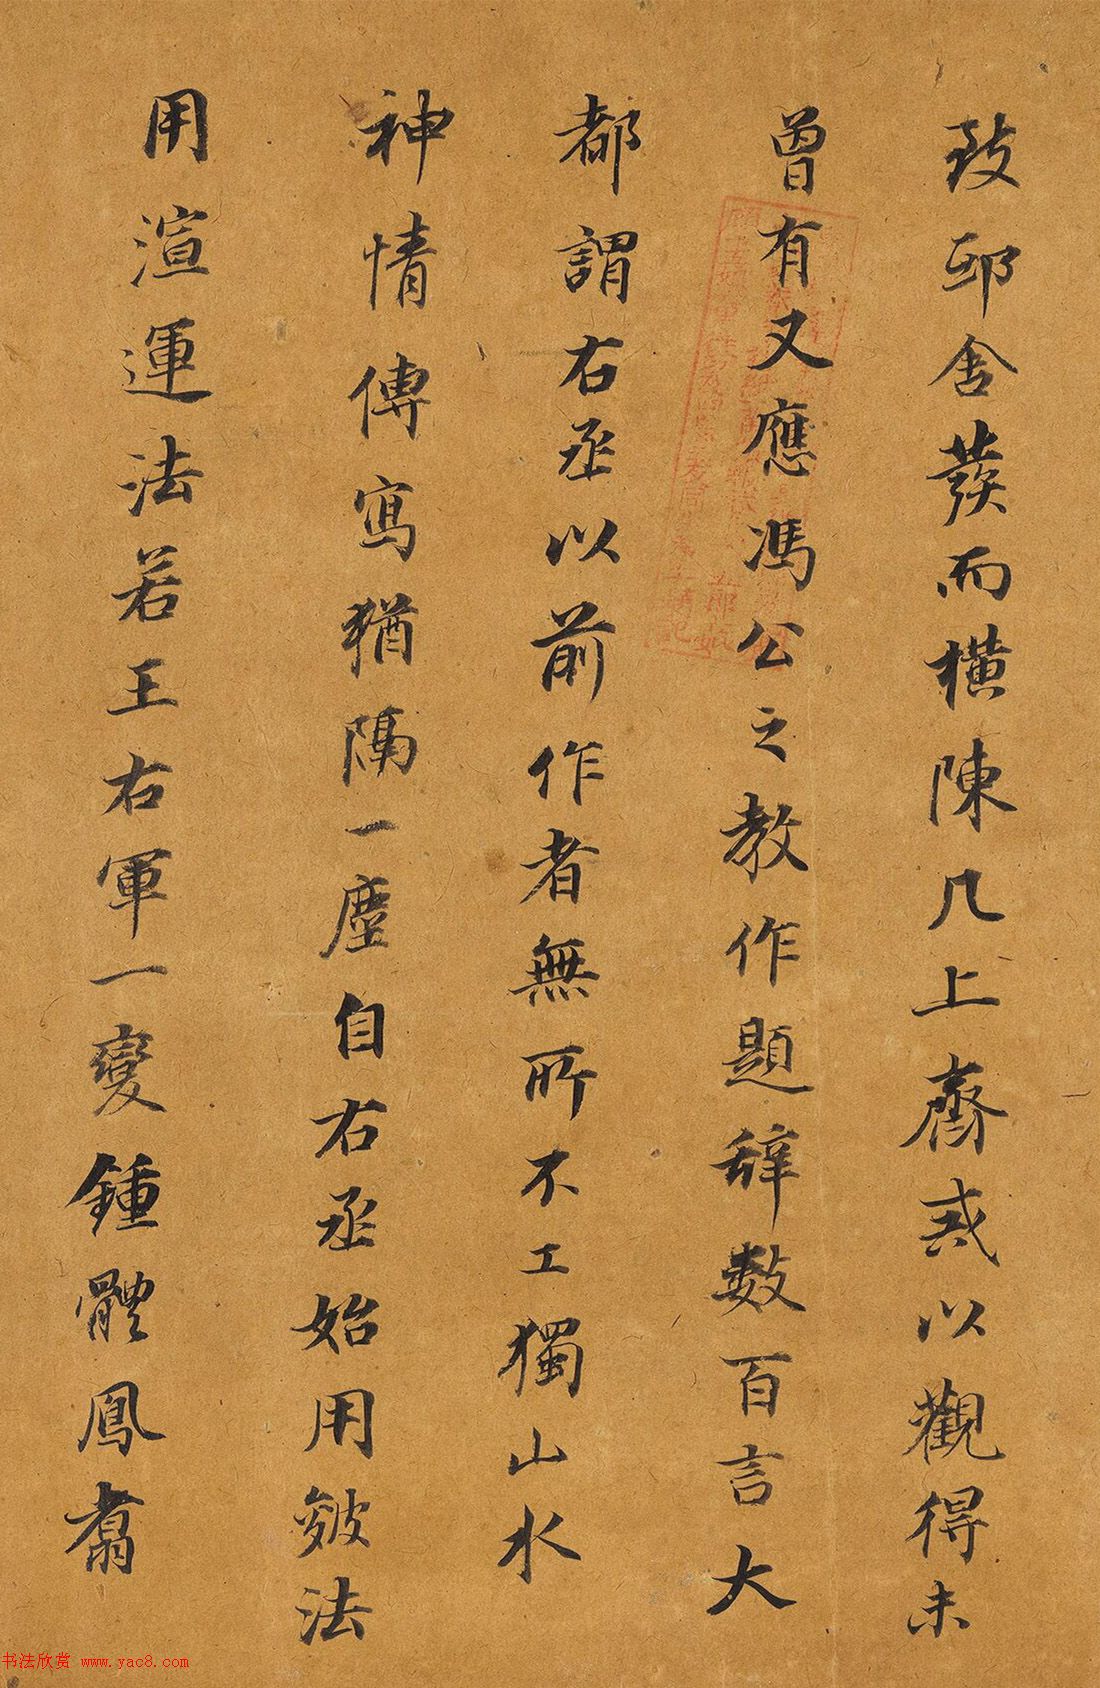 致邸舍發而橫陳几上齋戒以觀得未
曾有又應馮公之教作題辞數百言大
都謂右丞以前作者無所不工獨山水
神情傳寫猶隔一塵自右丞始用皴法
用渲運法若王右軍一變鍾體鳳翥
书法欣赏 www.yac8.com